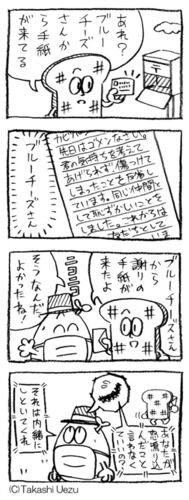 あれ？
ブルー
チーズ
さんか
ら手紙
が来てる
カビパン
先日はゴメンなさい。
君の気持ちを考えて
あげられず傷つけて
しまったことを反省し
ています。同じ仲間と
して恥ずかしいことを
しました。これからは
ブルーチーズさん
ブルーチーズさん
から
謝りの
手紙が
来たよ
ニョニョ
そうなんだ。
よかったね！
あなたが
怒鳴り込
んだこと
言わなく
ていいの？
それは内緒に
しといてくれ
(C)Takashi Uezu